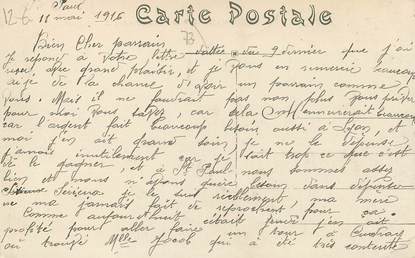 Paul
12 6
11 mai 1916
Carte Postale
73
Bien Cher parrain
Je réponds à votre lettre datée du 9 dernier que j'ai
reçue avec grand plaisir, et je vous en remercie beaucoup
je de la chance d'avoir un parrain comme
vous. Mais il ne faudrait pas non plus vous priver
pour moi vous savez, car cela m'ennuierait beaucoup
car l'argent fait beaucoup besoin aussi à Lyon, et
moi j'en ai grand soin, je ne le dépense
jamais inutilement car je sait trop ce que c'est
de le gagner, et à St Paul nous sommes assez
bien et nous n'avons guère besoin dans dépense
Sérieux je le suis réellement, ma mère
ne ma jamais fait de reproches pour ça.
Comme aujourd'hui c'était jeudi j'en ait
profité pour aller faire un tour à
où trouvé Mlle Jacob qui a été très contente